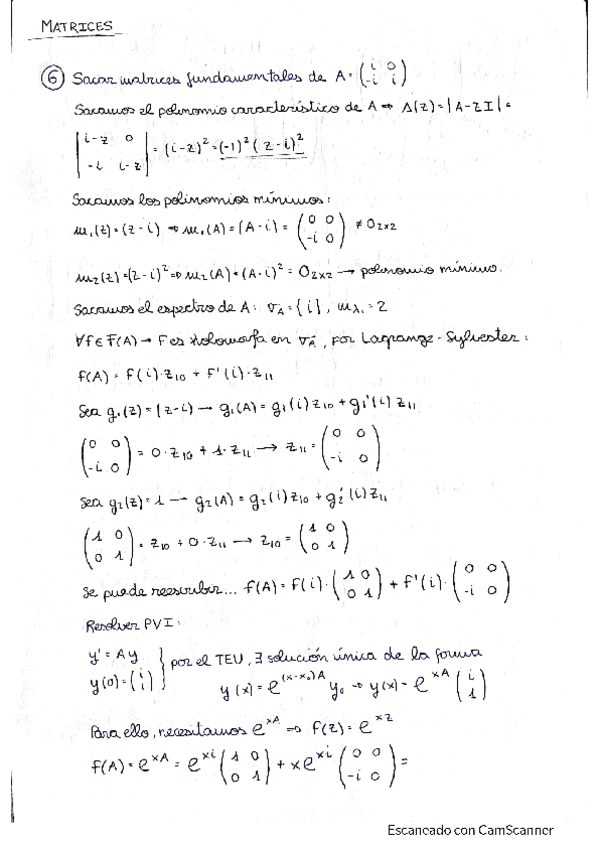 MATRICES
⑥ Sacar matrices fundamentales de A = (i 0 / -i i)
Sacamos el polinomio característico de A ⇒ Δ(z) = |A-zI| =
|i-z 0 / -i i-z| = (i-z)² = (-1)² (z-i)²
Sacamos los polinomios mínimos:
m₁(z) = (z-i) ⇒ m₁(A) = (A-i) = (0 0 / -i 0) ≠ 0₂ₓ₂
m₂(z) = (z-i)² ⇒ m₂(A) = (A-i)² = 0₂ₓ₂ → polinomio mínimo.
Sacamos el espectro de A: σ_A = {i}, m_λ₁ = 2
∀f∈F(A) → F es holomorfa en σ_A, por Lagrange-Sylvester:
f(A) = f(i)·z₁₀ + f'(i)·z₁₁
Sea g₁(z) = (z-i) → g₁(A) = g₁(i) z₁₀ + g₁'(i) z₁₁
(0 0 / -i 0) = 0·z₁₀ + 1·z₁₁ → z₁₁ = (0 0 / -i 0)
Sea g₂(z) = 1 → g₂(A) = g₂(i) z₁₀ + g₂'(i) z₁₁
(1 0 / 0 1) = z₁₀ + 0·z₁₁ → z₁₀ = (1 0 / 0 1)
Se puede reescribir... f(A) = f(i)·(1 0 / 0 1) + f'(i)·(0 0 / -i 0)
Resolver PVI:
y' = Ay
y(0) = (i / 1) } por el TEU, ∃ solución única de la forma
y(x) = e^((x-x₀)A) y₀ → y(x) = e^(xA) (i / 1)
Para ello, necesitamos e^(xA) ⇒ f(z) = e^(xz)
f(A) = e^(xA) = e^(xi) (1 0 / 0 1) + xe^(xi) (0 0 / -i 0) =
Escaneado con CamScanner